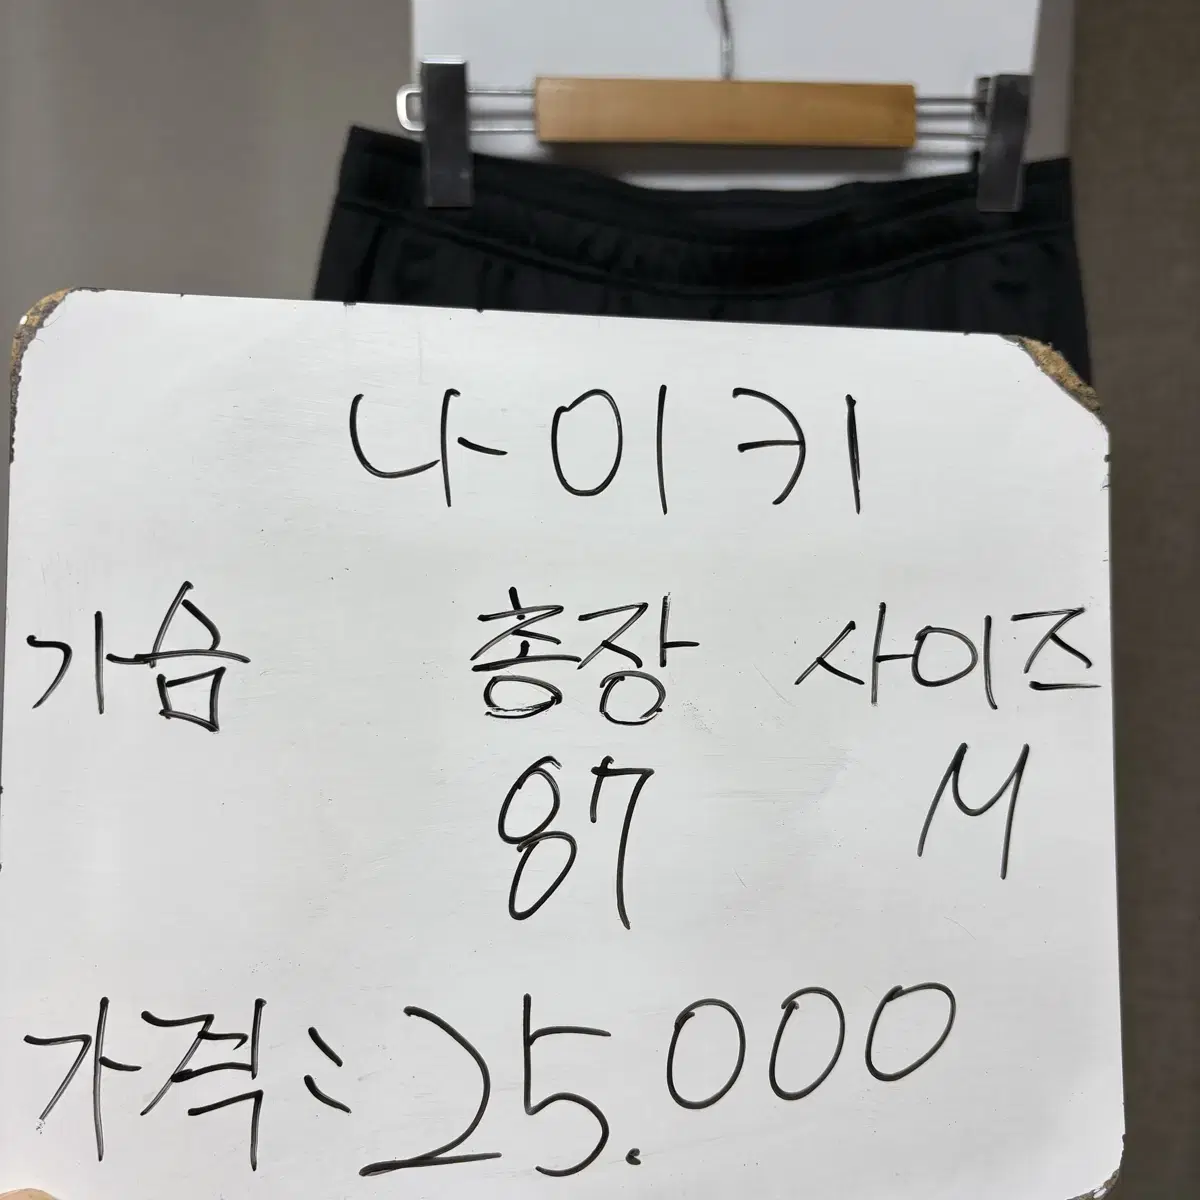 나이키
가슴 총장 사이즈
87 M
가격: 25.000